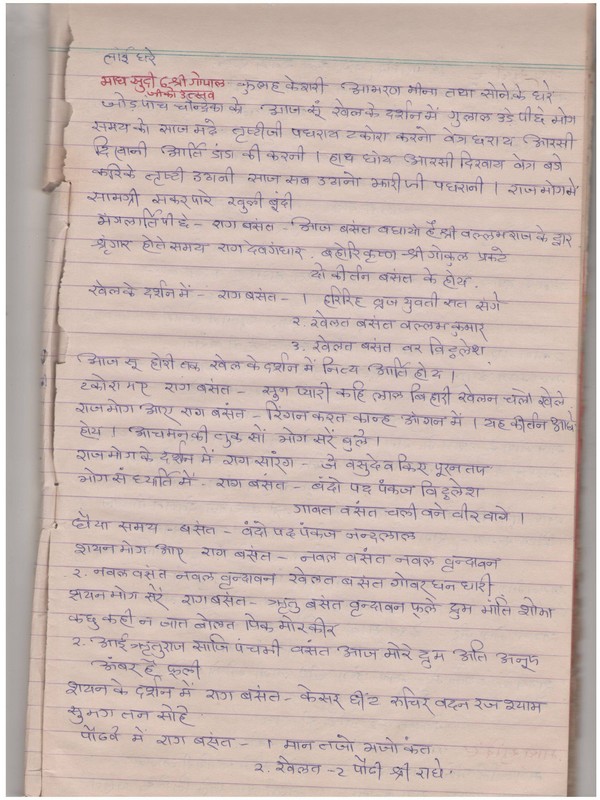 लांई धरे
माघ सुदी ६ - श्री गोपाल जीको उत्सव कुलह केशरी आभरण मीना तथा सोने के धरे
जोड पांच चन्द्रिका के आज सूं खेल के दर्शन में गुलाल उडे पीछे भोग
समय को साज मढे दृष्टीजी पधराय टकोरा करनो वेत्र धराय आरसी
दिखानी आर्ति डांडा की करनी । हाथ धोय आरसी दिखाय वेत्र बडे
करिके दृष्टी उठानी साज सब उठानो झारीजी पधरानी । राजभोग में
सामग्री सकरपारे खुली बूंदी
मंगलार्ति पीछे - राग बसंत - आज बसंत बधायो है श्री वल्लभराज के द्वार
श्रृंगार होते समय राग देवगंधार बहोरि कृष्ण श्री गोकुल प्रकटे
ये कीर्तन बसंत के होय .
खेल के दर्शन में - राग बसंत - १ हरिरिह व्रज युवती शत संगे
२. खेलत बसंत वल्लभ कुमार
३. खेलत बसंत वर विठ्ठलेश
आज सू होरी तक खेल के दर्शन में नित्य आर्ति होय ।
टकोरा भए राग बसंत - सुन प्यारी कहि लाल बिहारी खेलन चलो खेले
राजभोग आए राग बसंत - रिंगन करत कान्ह आंगन में । यह कीर्तन आखो
होय । आचमन की तुक सों भोग सरें बुले ।
राजभोग के दर्शन में राग सारंग - जे वसुदेव किए पूरन तप
भोग संध्यार्ति में - राग बसंत - बंदो पद पंकज विठ्ठलेश
गावत वसंत चली बने वीर वागे ।
छैया समय - बसंत - वंदो पद पंकज नन्दलाल
शयन भोग आए राग बसंत - नवल वसंत नवल वृन्दावन
२. नवल वसंत नवल वृन्दावन खेलत बसंत गोवरधन धारी
शयन भोग सरें राग बसंत - ऋतु बसंत वृन्दावन फूले द्रुम भांति शोभा
कछु कही न जात बोलत पिक मोर कीर
२. आई ऋतुराज साजि पंचमी वसंत आज मोरे द्रुम अति अनूप
अंबर है फूली
शयन के दर्शन में राग बसंत - केसर छींट रुचिर वदन रज श्याम
सुभग तन सोहे
पोंढवे में राग बसंत - १ मान तजो भजो कंत
२. खेलत - २ पौढी श्री राधे